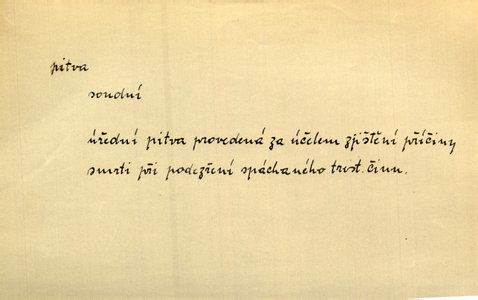 pitva
soudní
úřední pitva provedená za účelem zjištění příčiny
smrti při podezření spáchaného trest. činu.